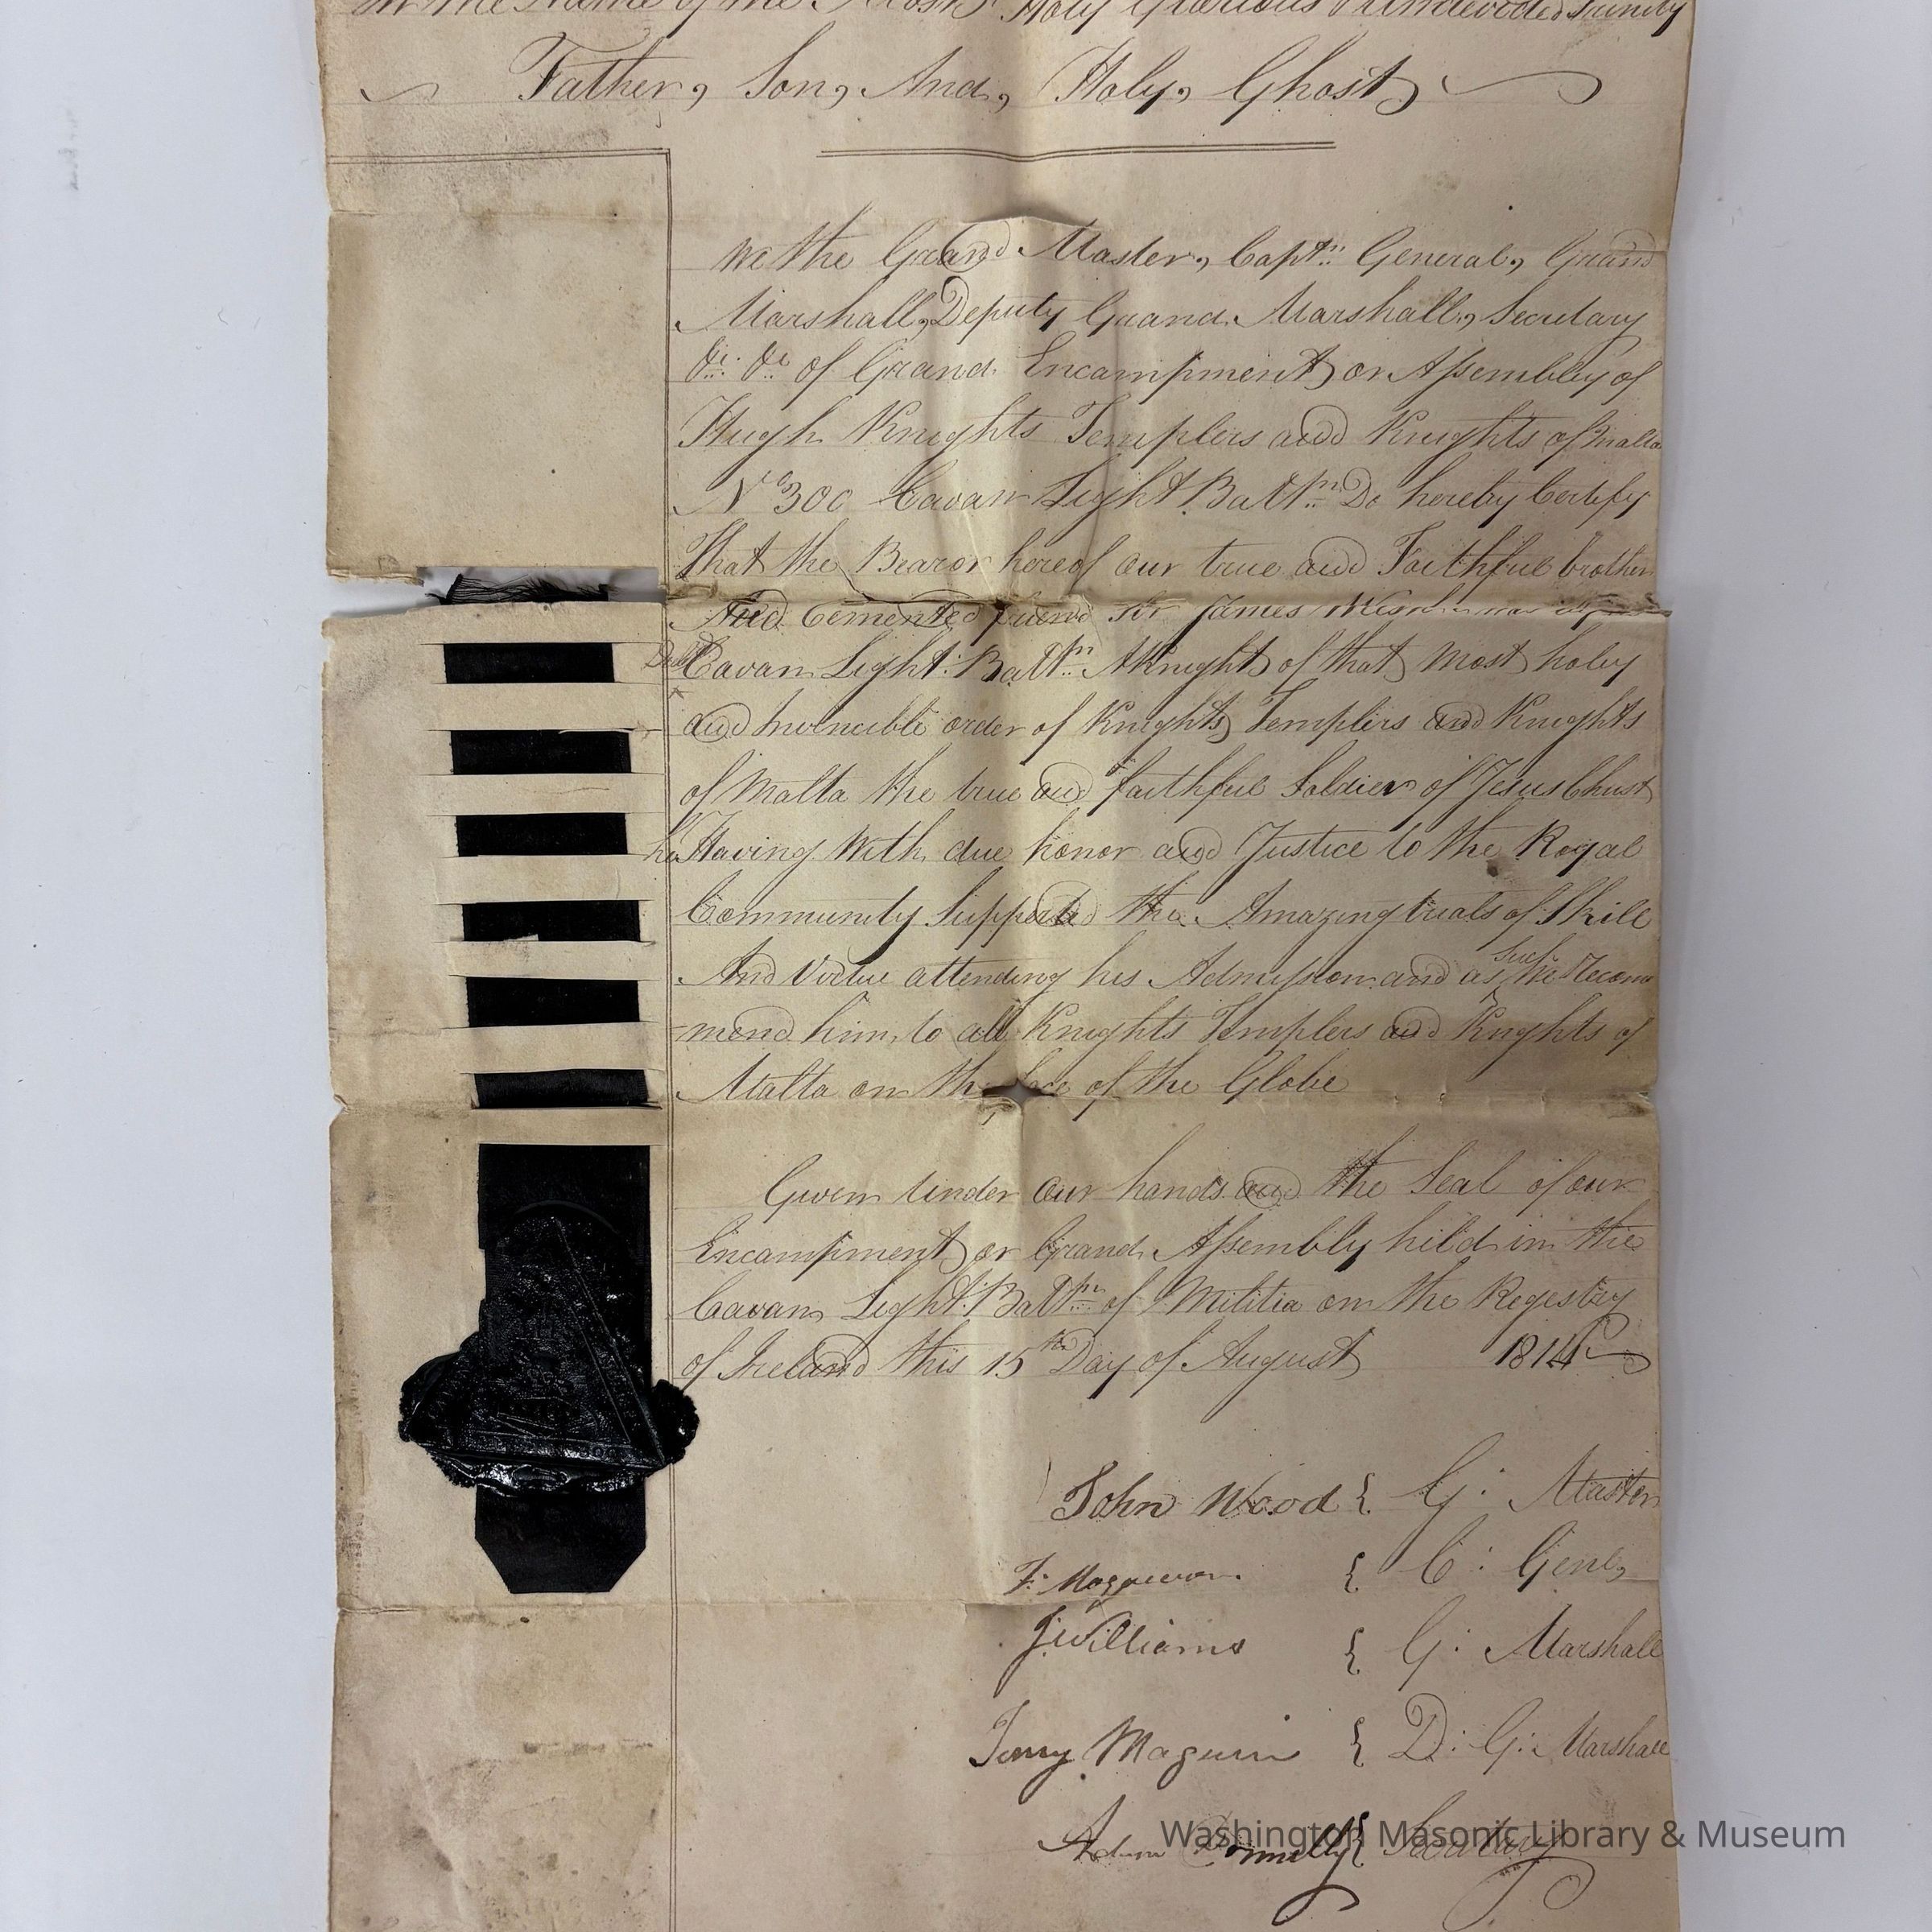 In the Name of the Most Holy Glorious & Undevided Trinity
Father, Son, And, Holy, Ghost
We the Grand Master, Captn General, Grand
Marshall, Deputy Grand Marshall, Secretary
&c. &c of Grand Encampment or Assembley of
Hugh Knights Templers and Knights of Malta
No 300 Cavan Light Battn Do hereby Certify
That the Bearor hereof our true and Faithful brother
And Cemented friend Sir James
Cavan Light Battn A Knight of that most holy
and Invincible order of Knights Templers and Knights
of Malta the true and faithful Soldier of Jesus Christ
he Having With due honor and Justice to the Royal
Community Supported the Amazing trials of Skill
And Virtue attending his Admission and as such We Recom
=mend him to all Knights Templers and Knights of
Malta on the face of the Globe
Given under our hands and the Seal of our
Encampment or Grand Assembly held in the
Cavan Light Battn of Militia on the Regestry
of Ireland this 15th Day of August 1814
John Wood { G: Master
{ C: Genl,
J Williams { G: Marshall
Terry Maguire { D: G: Marshall
Adam Connelly { Secretary
Washington Masonic Library & Museum